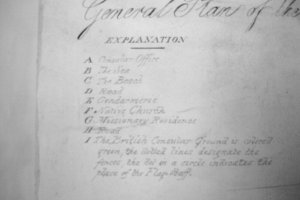 General Plan of the
EXPLANATION
A Consular Office
B The Sea
C The Beach
D Road
E Gendarmerie
F Native Church
G Missionary Residence
H Road
I The British Consular Ground is colored
green, the dotted lines designate the
fences, the dot in a circle indicates the
place of the Flag Staff.